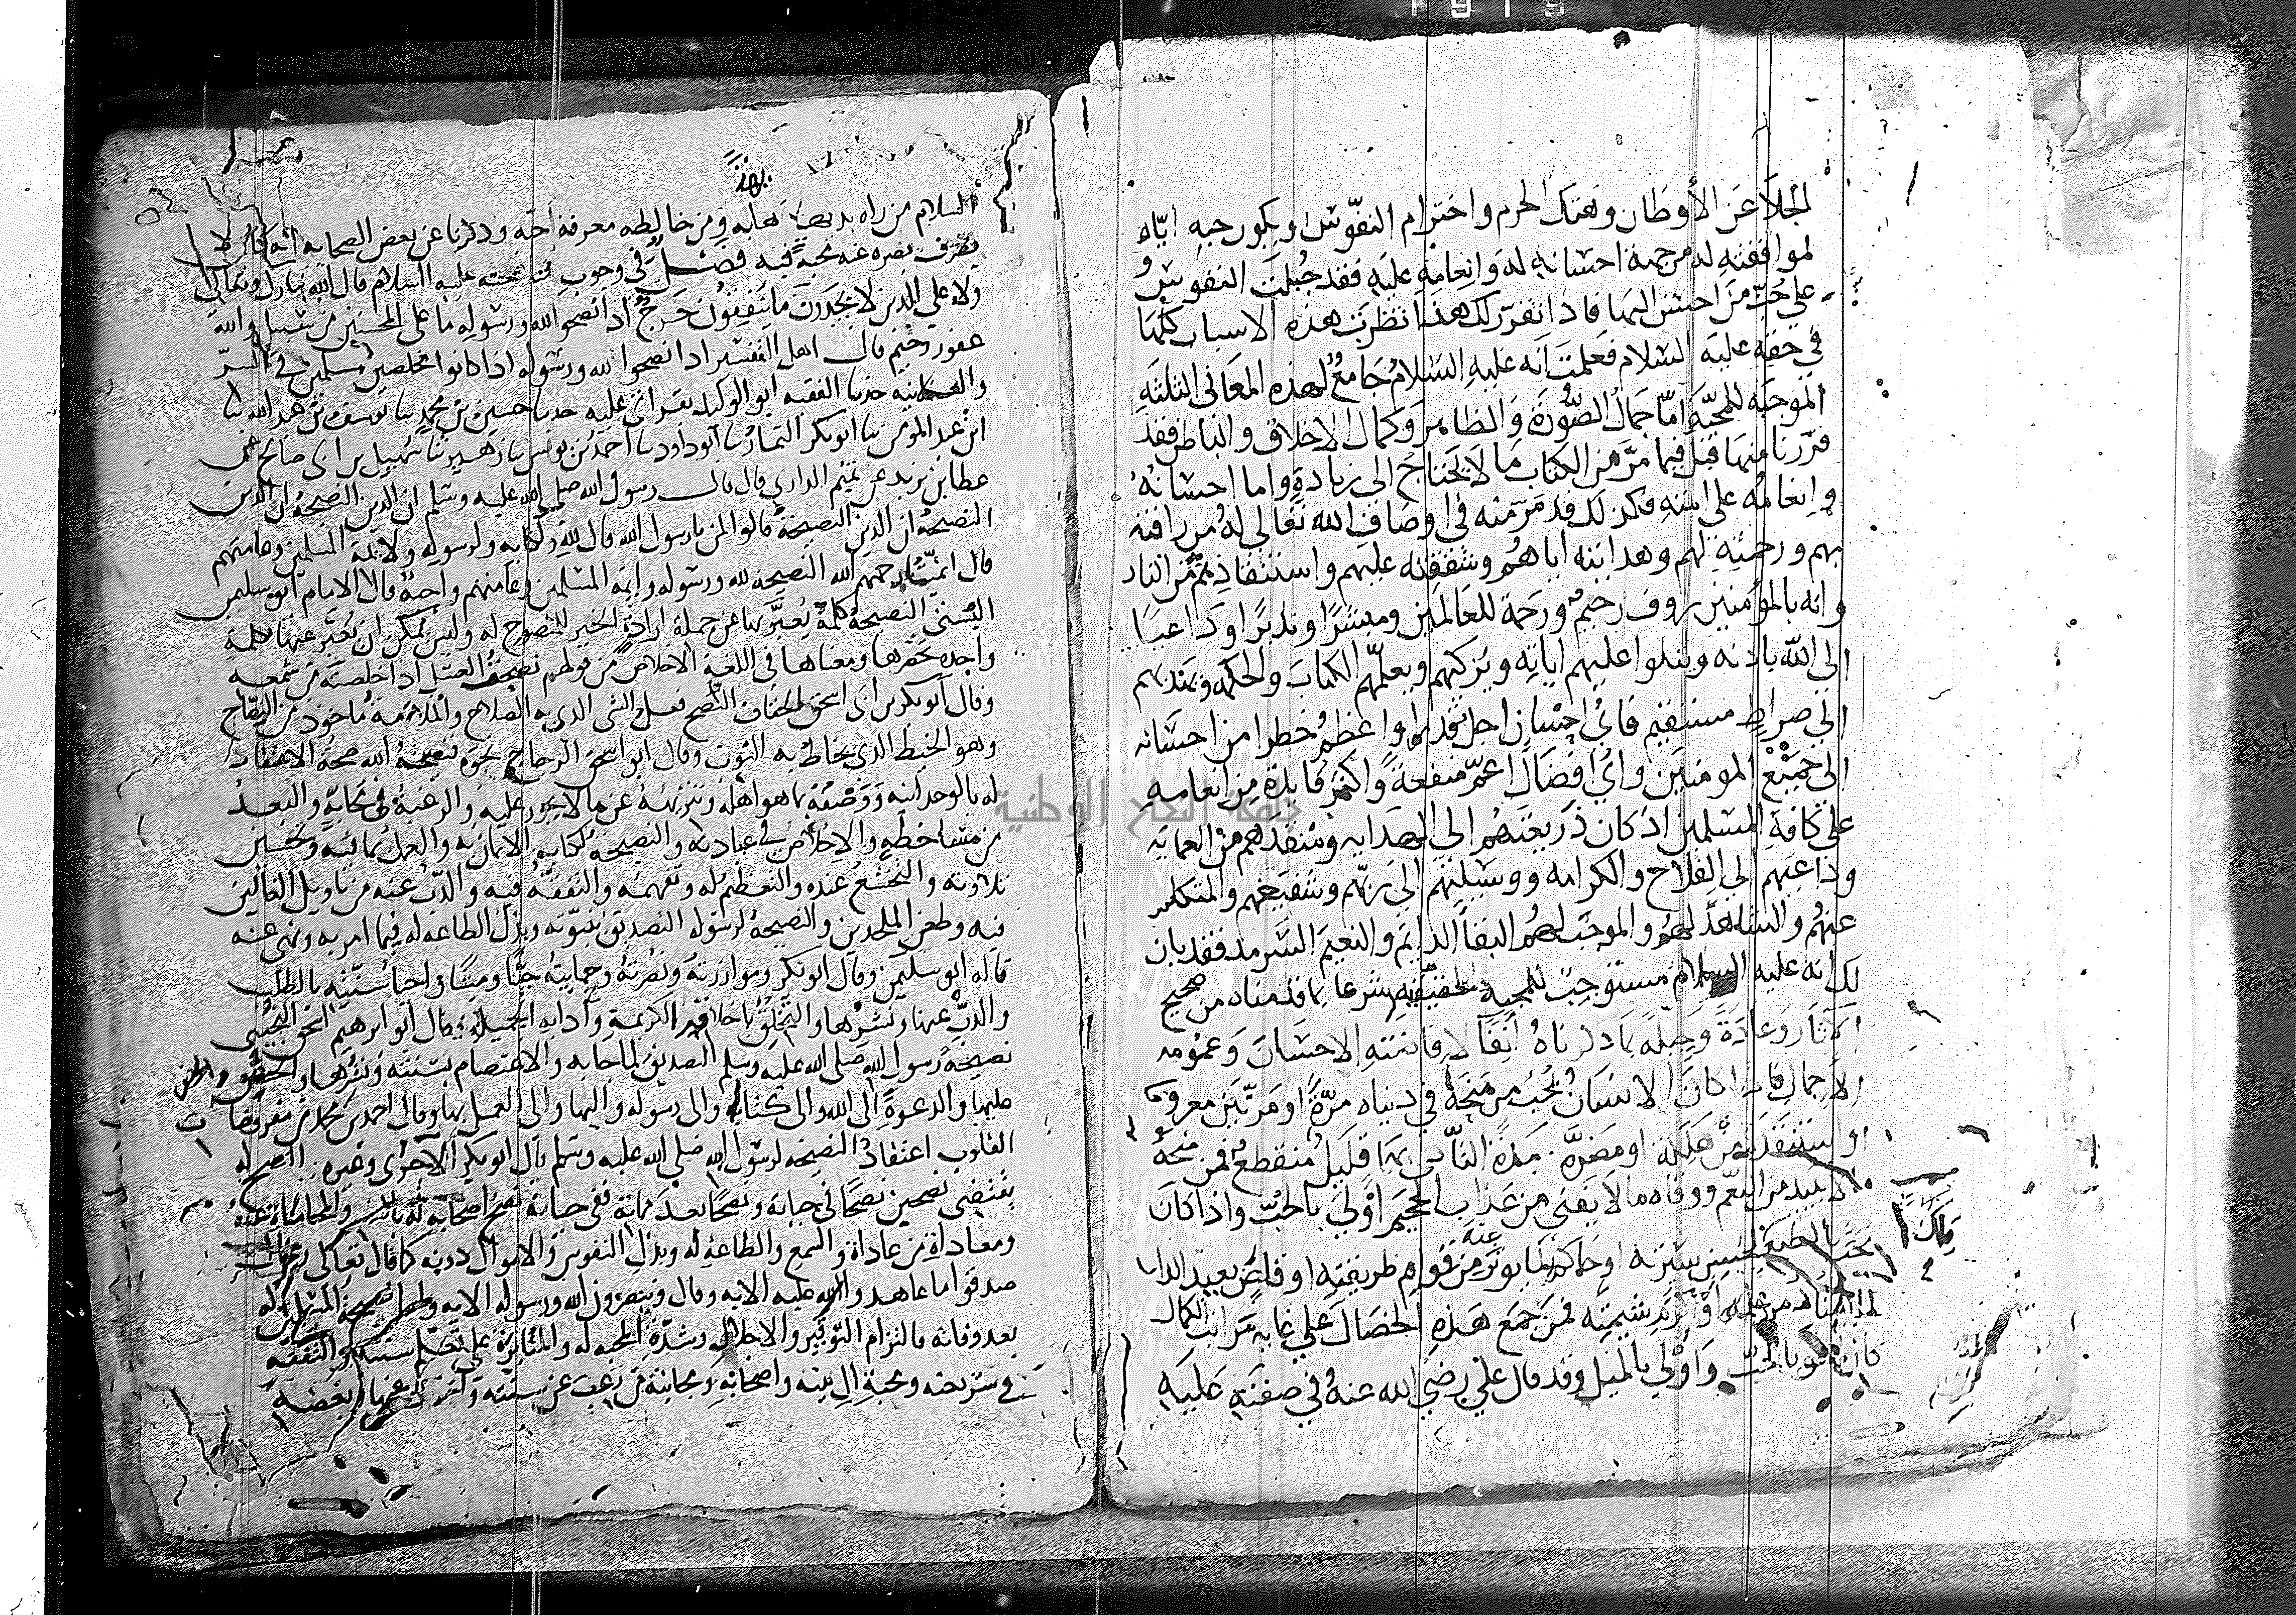 الجلا عن الأوطان وهتك الحرم واخترام النفوس او يكون حبه اياه
لموافقته له من جهة احسانه له وانعامه عليه فقد جبلت النفوس
على حب من احسن اليها فاذا تقرر لك هذا نظرت هذه الاسباب كلها
في حقه عليه السلام فعلمت انه عليه السلام جامع لهذه المعاني الثلثة
الموجبة للمحبة اما جمال الصورة والظاهر وكمال الاخلاق والباطن فقد
قررنا منها قبل فيما مر من الكتاب ما لا يحتاج الى زيادة واما احسانه
وانعامه على امته فكذلك قد مر منه في اوصاف الله تعالى له من رافته
بهم ورحمته لهم وهدايته اياهم وشفقته عليهم واستنقاذهم من النار
وانه بالمؤمنين روف رحيم ورحمة للعالمين ومبشرا ونذيرا وداعيا
الى الله باذنه ويتلوا عليهم اياته ويزكيهم ويعلمهم الكتاب والحكمة ويهديهم
الى صراط مستقيم فاي احسان اجل قدرا واعظم خطرا من احسانه
الى جميع المومنين واي افضال اعم منفعة واكثر فايدة من انعامه
على كافة المسلمين اذ كان ذريعتهم الى الهداية ومنقذهم من العماية
وداعيهم الى الفلاح والكرامة ووسيلتهم الى ربهم وشفيعهم والمتكلم
عنهم والشاهد لهم والموجب لهم البقا الدايم والنعيم السرمد فقد بان
لك انه عليه السلام مستوجب للمحبة الحقيقية شرعا بما قدمناه من صحيح
الاثار وعادة وجبلة بما ذكرناه انفا لافاضته الاحسان وعمومه
الاجمال فاذا كان الانسان يحب من منحه في دنياه مرة او مرتين معروفا
او استنقذه من هلكة او مضرة مدة التاذي بها قليل منقطع فمن منحه
ما لا يبيد من النعم ووقاه ما لا يفنى من عذاب الجحيم اولى بالحب واذا كان
يحب بالطبع لحسن سيرته او حاكم لما يوثر عنه من قوام طريقته او قاص بعيد الدار
لما من علمه او كرم شيمته فمن جمع هذه الخصال على غاية مراتب الكمال
بالحب واولى بالميل وقد قال علي رضي الله عنه في صفته عليه
السلام من راه بديهة هابه ومن خالطه معرفة احبه وذكرنا عن بعض الصحابة انه كان لا
يصرف بصره عنه محبة فيه فصل في وجوب مناصحته عليه السلام قال الله تبارك وتعالى
ولا على الذين لا يجدون ما ينفقون حرج اذا نصحوا لله ورسوله ما على المحسنين من سبيل والله
غفور رحيم قال اهل التفسير اذا نصحوا لله ورسوله اذا كانوا مخلصين مسلمين في السر
والعلانية حدثنا الفقيه ابو الوليد بقراتي عليه حدثنا حسين بن محمد نا يوسف بن عبد الله نا
ابن عبد المومن نا ابو بكر التمار نا ابو داود نا احمد بن يونس نا زهير نا سهيل بن ابي صالح عن
عطا بن يزيد عن تميم الداري قال قال رسول الله صلى الله عليه وسلم ان الدين النصيحة ان الدين
النصيحة ان الدين النصيحة قالوا لمن يا رسول الله قال لله ولكتابه ولرسوله ولائمة المسلمين وعامتهم
قال ائمتنا رحمهم الله النصيحة لله ورسوله وائمة المسلمين وعامتهم واجبة قال الامام ابو سليمن
البستي النصيحة كلمة يعبر بها عن جملة ارادة الخير للمنصوح له وليس يمكن ان يعبر عنها بكلمة
واحدة تحصرها ومعناها في اللغة الاخلاص من قولهم نصحت العسل اذا خلصته من شمعه
وقال ابو بكر بن ابي اسحق الخفاف النصح فعل الشي الذي به الصلاح والملاءمة ماخوذ من النصاح
وهو الخيط الذي يخاط به الثوب وقال ابو اسحق الزجاج نحوه فنصيحة الله صحة الاعتقاد
له بالوحدانية ووصفه بما هو اهله وتنزيهه عن ما لا يجوز عليه والرغبة في محابه والبعد
من مساخطه والاخلاص في عبادته والنصيحة لكتابه الايمان به والعمل بما فيه وتحسين
تلاوته والتخشع عنده والتعظيم له وتفهمه والتفقه فيه والذب عنه من تاويل الغالين
فيه وطعن الملحدين والنصيحة لرسوله التصديق بنبوته وبذل الطاعة له فيما امر به ونهى عنه
قاله ابو سليمن وقال ابو بكر وموازرته ونصرته وحمايته حيا وميتا واحيا سنته بالطلب
والذب عنها ونشرها والتخلق باخلاقه الكريمة وادابه الجميلة وقال ابو ابرهيم اسحق التجيبي
نصيحة رسول الله صلى الله عليه وسلم التصديق بما جا به والاعتصام بسنته ونشرها والحض
عليها والدعوة الى الله والى كتابه والى رسوله واليها والى العمل بها وقال احمد بن محمد من مفروضات
القلوب اعتقاد النصيحة لرسول الله صلى الله عليه وسلم قال ابو بكر الاجري وغيره النصح له
يقتضي نصحين نصحا في حياته ونصحا بعد مماته ففي حياته نصح اصحابه له بالنصر والمحاماة عنه
ومعاداة من عاداه والسمع والطاعة له وبذل النفوس والاموال دونه كما قال تعالى رجال
صدقوا ما عاهدوا الله عليه الاية وقال وينصرون الله ورسوله الاية واما نصيحة المسلمين له
بعد وفاته فالتزام التوقير والاجلال وشدة المحبة له والمثابرة على تعلم سنته والتفقه
في شريعته ومحبة ال بيته واصحابه ومجانبة من رغب عن سنته وانحرف عنها وبغضه